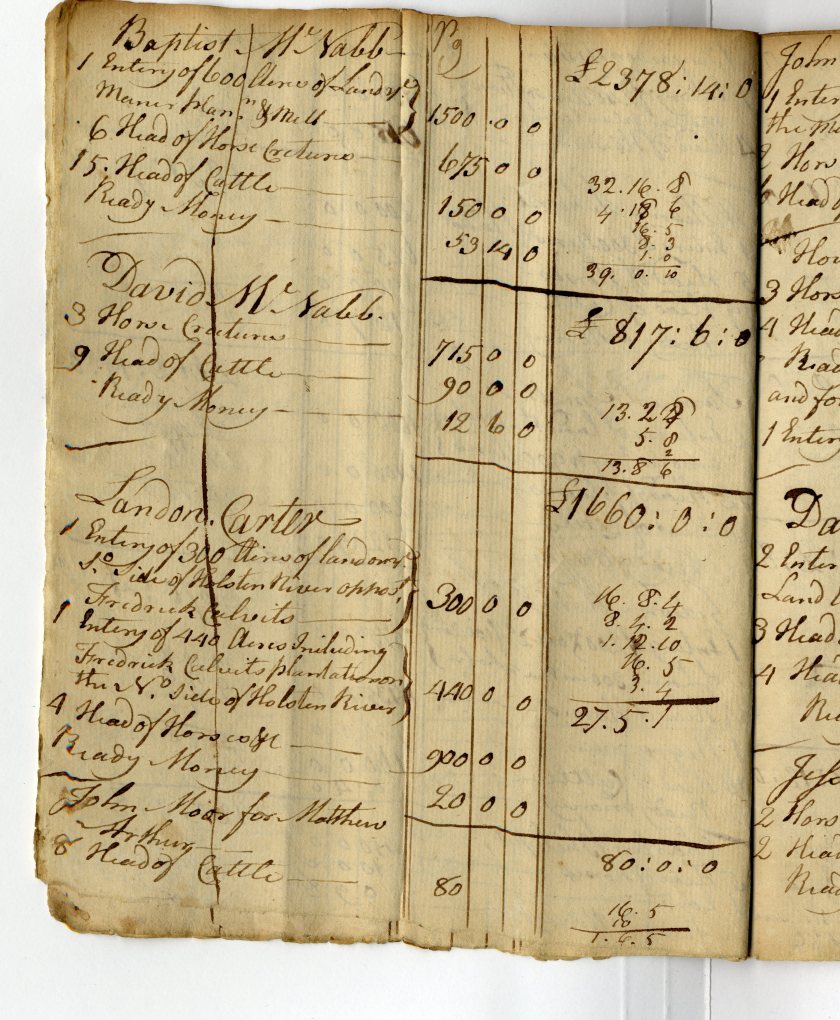 Baptist Mc Nabb £2378:14:0
1 Entery of 600 Acres of Land
Manner Plann & Mill 1500 0 0
6 Head of Horse Cretures 675 0 0
15 Head of Cattle 150 0 0
Ready Money 53 14 0
32.16.8
4.18 6
16.5
8.3
1.0
39. 0. 10
David Mc Nabb. £817:6:0
3 Horse Cretures 715 0 0
9 Head of Cattle 90 0 0
Ready Money 12 6 0
13.2
5.8
2
13.8 6
Landon Carter £1660:0:0
1 Entery of 300 Acres of land on ye
So Side of Holsten River oppost
Fredrick Culvits 300 0 0
1 Entery of 440 Acres Including
Fredrick Culvits plantation on
the No Side of Holsten River 440 0 0
4 Head of Horse 900 0 0
Ready Money 20 0 0
16.8.4
8.4.2
1.12.10
16.5
3.4
27.5.1
John Moor for Matthew
Arthur 80:0:0
8 Head of Cattle 80
16.5
10
1.6.5
John
1 Enter
the
2 Hors
6 Head
Hor
3 Hors
4 Head
Read
and fo
1 Enter
Da
2 Enter
Land
3 Head
4 Hea
Re
Jess
2 Hors
2 Head
Read